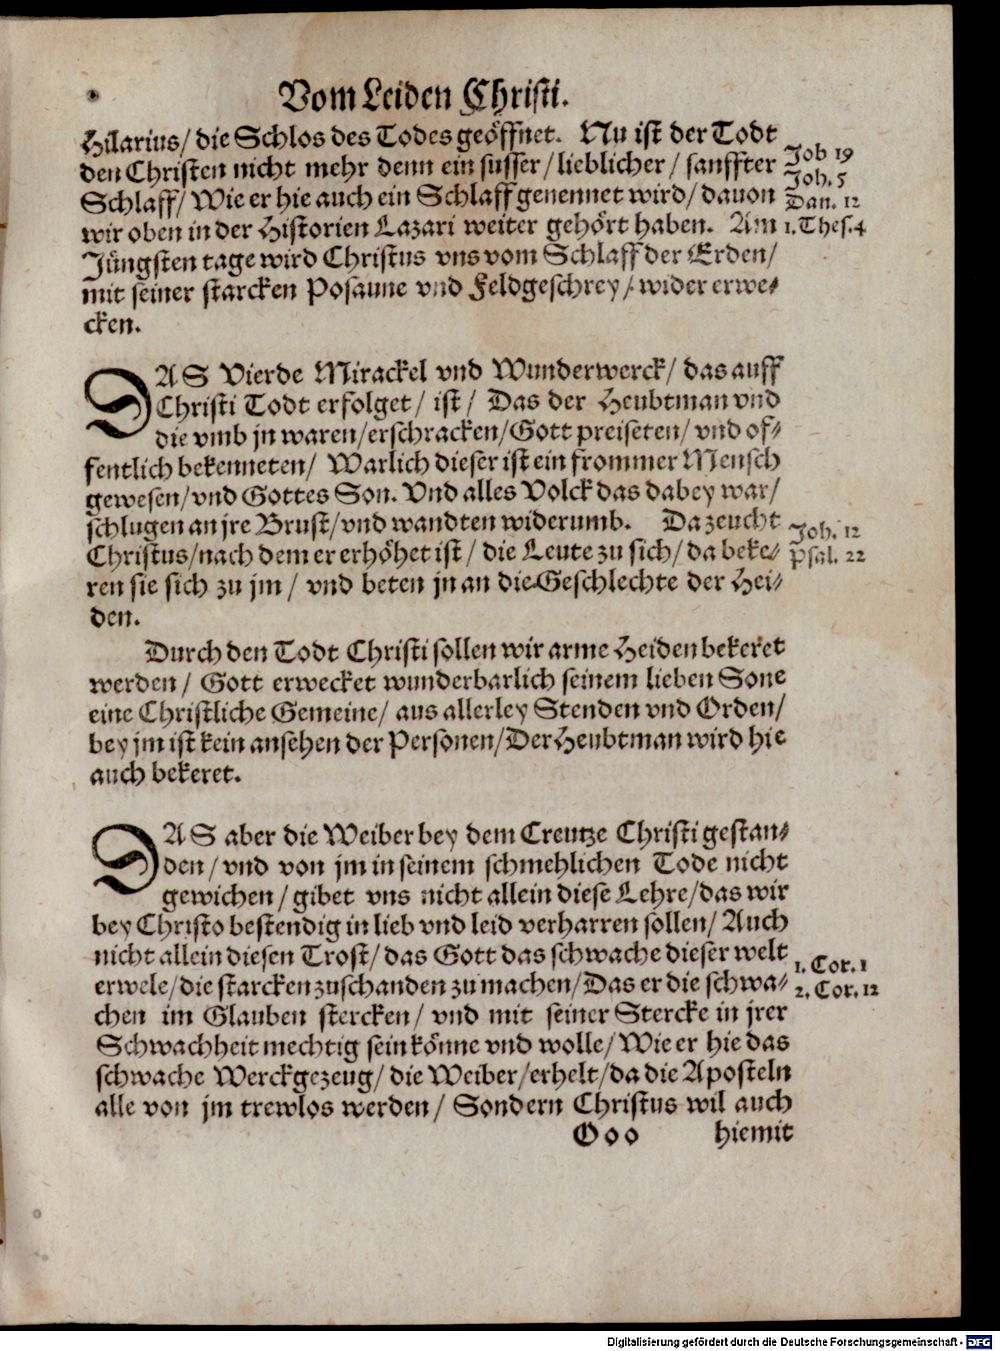 Vom Leiden Christi.
Hilarius/ die Schlos des Todes geöffnet. Nu ist der Todt
den Christen nicht mehr denn ein susser/ lieblicher/ sanffter
Schlaff/ Wie er hie auch ein Schlaff genennet wird/ dauon
wir oben in der Historien Lazari weiter gehört haben. Am
Jüngsten tage wird Christus vns vom Schlaff der Erden/
mit seiner starcken Posaune vnd Feldgeschrey/ wider erwe-
cken.
Job 19
Joh. 5
Dan. 12
1. Thes. 4
DAS Vierde Mirackel vnd Wunderwerck/ das auff
Christi Todt erfolget/ ist/ Das der Heubtman vnd
die vmb jn waren/ erschracken/ Gott preiseten/ vnd of-
fentlich bekenneten/ Warlich dieser ist ein frommer Mensch
gewesen/ vnd Gottes Son. Vnd alles Volck das dabey war/
schlugen an jre Brust/ vnd wandten widerumb. Da zeucht
Christus/ nach dem er erhöhet ist/ die Leute zu sich/ da beke-
ren sie sich zu jm/ vnd beten jn an die Geschlechte der Hei-
den.
Joh. 12
Psal. 22
Durch den Todt Christi sollen wir arme Heiden bekeret
werden/ Gott erwecket wunderbarlich seinem lieben Sone
eine Christliche Gemeine/ aus allerley Stenden vnd Orden/
bey jm ist kein ansehen der Personen/ Der Heubtman wird hie
auch bekeret.
DAS aber die Weiber bey dem Creutze Christi gestan-
den/ vnd von jm in seinem schmehlichen Tode nicht
gewichen/ gibet vns nicht allein diese Lehre/ das wir
bey Christo bestendig in lieb vnd leid verharren sollen/ Auch
nicht allein diesen Trost/ das Gott das schwache dieser welt
erwele/ die starcken zuschanden zu machen/ Das er die schwa-
chen im Glauben stercken/ vnd mit seiner Stercke in jrer
Schwachheit mechtig sein könne vnd wolle/ Wie er hie das
schwache Werckgezeug/ die Weiber/ erhelt/ da die Aposteln
alle von jm trewlos werden/ Sondern Christus wil auch
1. Cor. 1
2. Cor. 12
O o o hiemit
Digitalisierung gefördert durch die Deutsche Forschungsgemeinschaft - DFG